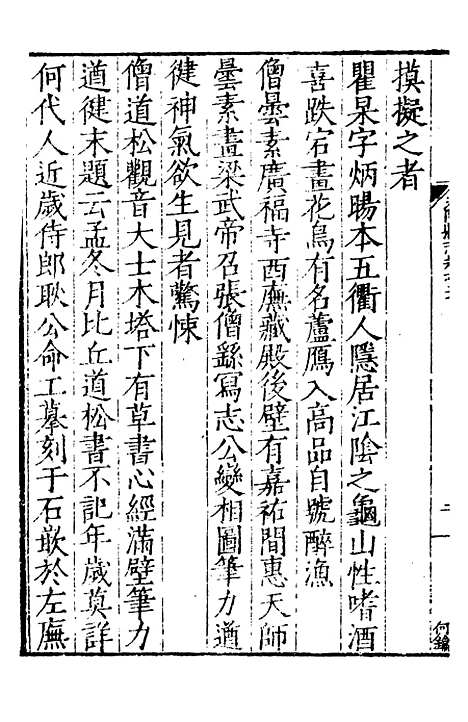 摸擬之者
瞿杲字炳暘本五衢人隱居江陰之龜山性嗜酒
喜跌宕畫花鳥有名蘆鴈入高品自號醉漁
僧曇素廣福寺西廡藏殿後壁有嘉祐間惠天師
曇素畫梁武帝召張僧繇寫志公變相圖筆力遒
健神氣欲生見者驚悚
僧道松觀音大士木塔下有草書心經滿壁筆力
遒健末題云孟冬月比丘道松書不記年歲莫詳
何代人近歲侍郎耿公命工摹刻于石嵌於左廡
何鑰